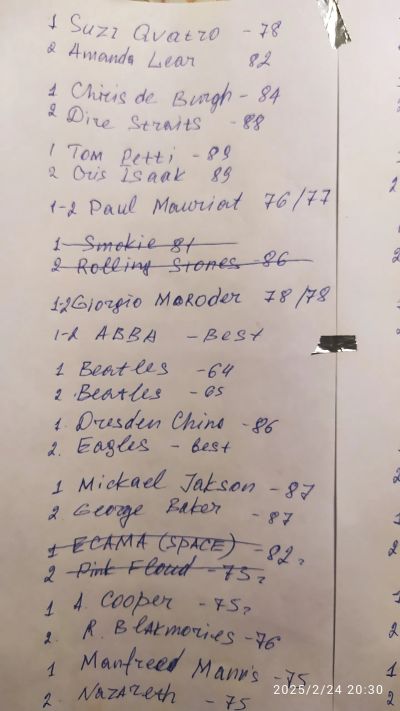 1 Suzi Qvatro - 78
2 Amanda Lear 82
1 Chris de Burgh - 84
2 Dire Straits - 88
1 Tom Petti - 89
2 Cris Isaak 89
1-2 Paul Mauriat 76/77
1 Smokie 81
2 Rolling Stones - 86
1-2 Giorgio Moroder 78/78
1-2 ABBA - Best
1 Beatles - 64
2. Beatles - 65
1. Dresden China - 86
2. Eagles - Best
1 Mickael Jakson - 87
2 George Baker - 87
1 ECAMA (SPACE) - 82?
2 Pink Floud - 75?
1 A. Cooper - 75?
2. R. Blakmories - 76
1 Manfreed Mann's - 75
2. Nazareth - 75
2025/2/24 20:30